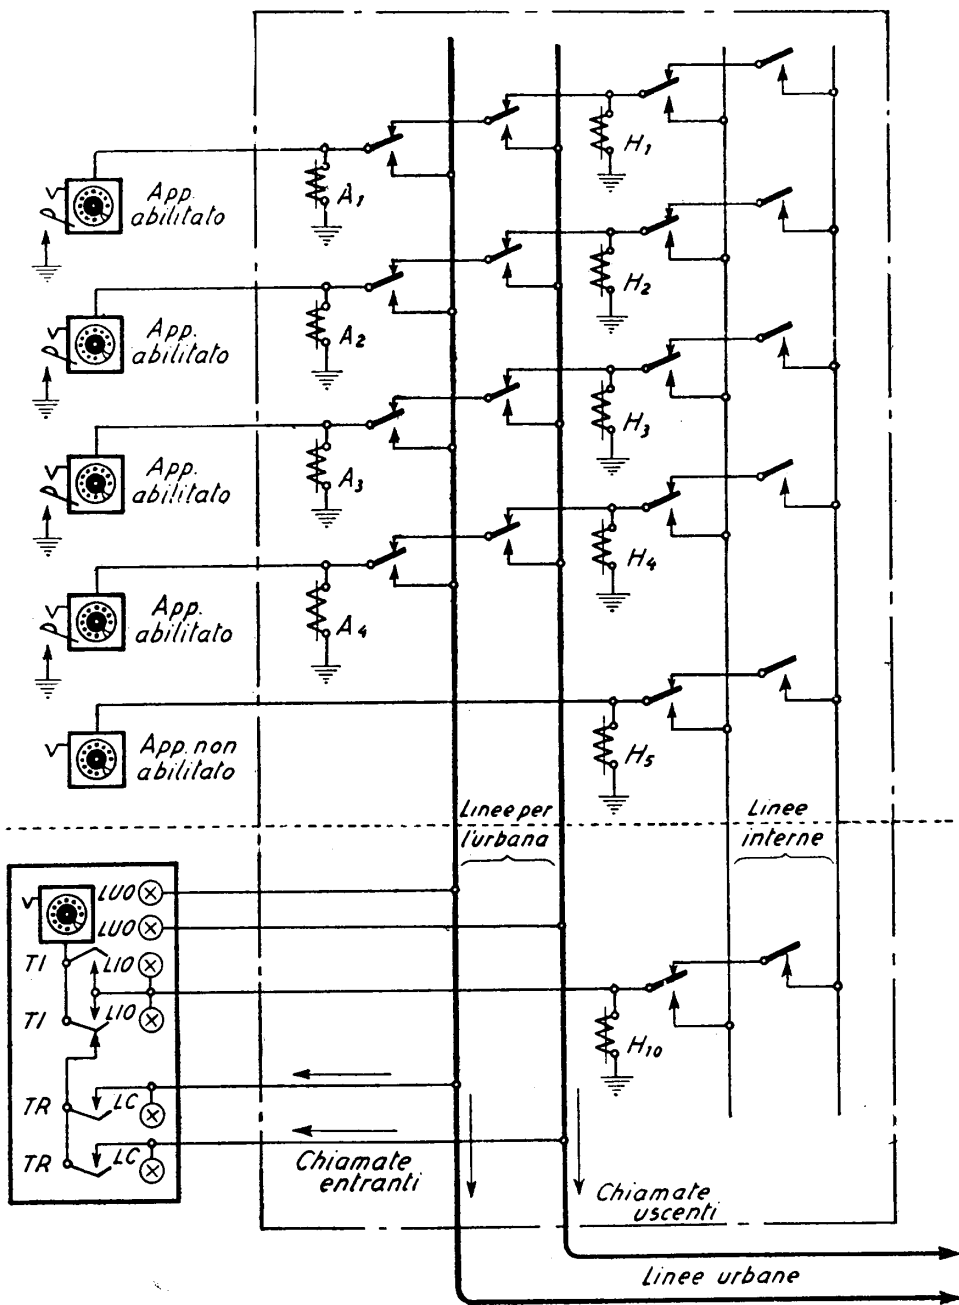 H1
App.
abilitato
A1
H2
App.
abilitato
A2
H3
App.
abilitato
A3
H4
App.
abilitato
A4
App. non
abilitato
H5
Linee per
l'urbana
Linee
interne
LUO
LUO
TI
LIO
TI
LIO
H10
TR
LC
TR
LC
Chiamate
entranti
Chiamate
uscenti
Linee urbane